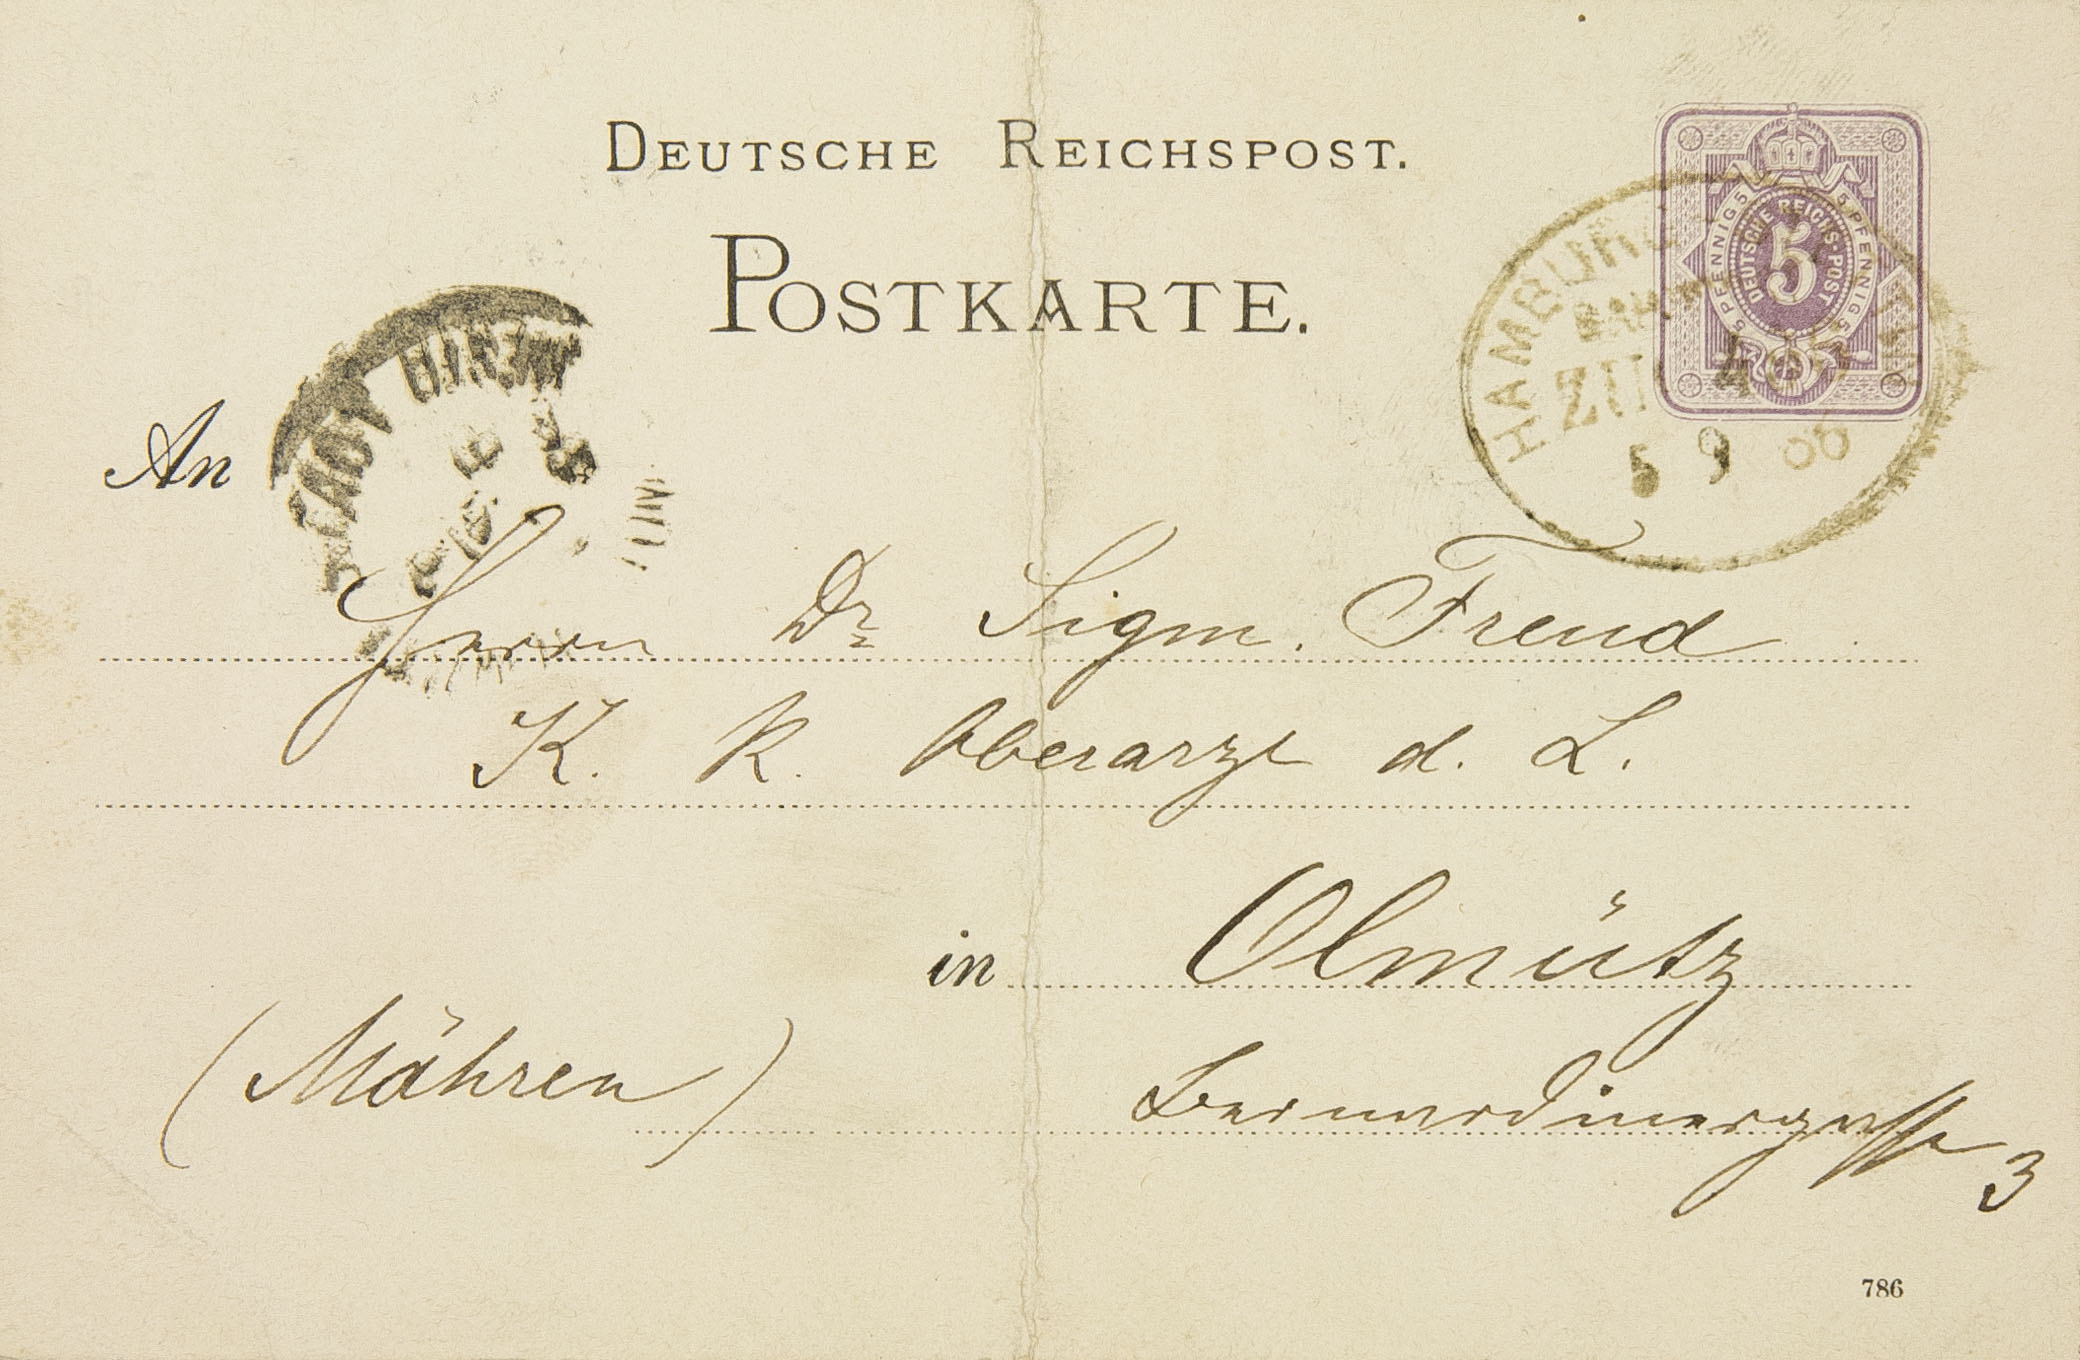 DEUTSCHE REICHSPOST.
POSTKARTE.
5 PFENNIG 5 5 PFENNIG 5
DEUTSCHE REICHS-POST
5
HAMBURG
ZUG
5 9
An
Herrn Dr Sigm. Freud
K. k. Oberarzt d. L.
in Olmütz
(Mähren)
Bernardinergasse 3
786